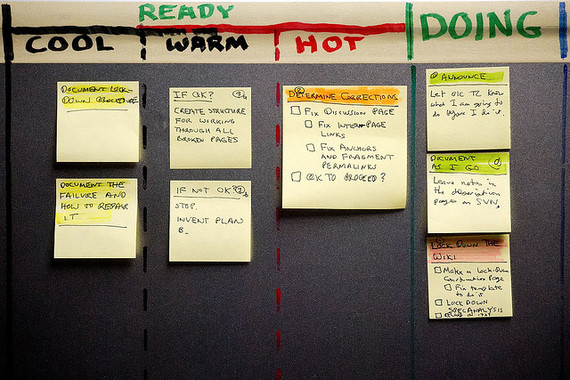 READY
COOL
WARM
HOT
DOING
DOCUMENT LOCK-
DOWN PROCEDURE
DOCUMENT THE
FAILURE AND
HOW TO REPAIR
IT
IF OK?
CREATE STRUCTURE
FOR WORKING
THROUGH ALL
BROKEN PAGES
IF NOT OK?
STOP.
INVENT PLAN
B.
DETERMINE CORRECTIONS
FIX DISCUSSION PAGE
FIX INTERPAGE
LINKS
FIX ANCHORS
AND FRAGMENT
PERMALINKS
OK TO PROCEED?
ANNOUNCE
Let OLC TZ know
what I am going to
do before I do it.
DOCUMENT
AS I GO
Leave notes in
the observation
pages on SVN,
LOCK DOWN THE
WIKI
Make a Lock-Down
Page
Fix template
to do it
LOCK DOWN
SPECANALYSIS